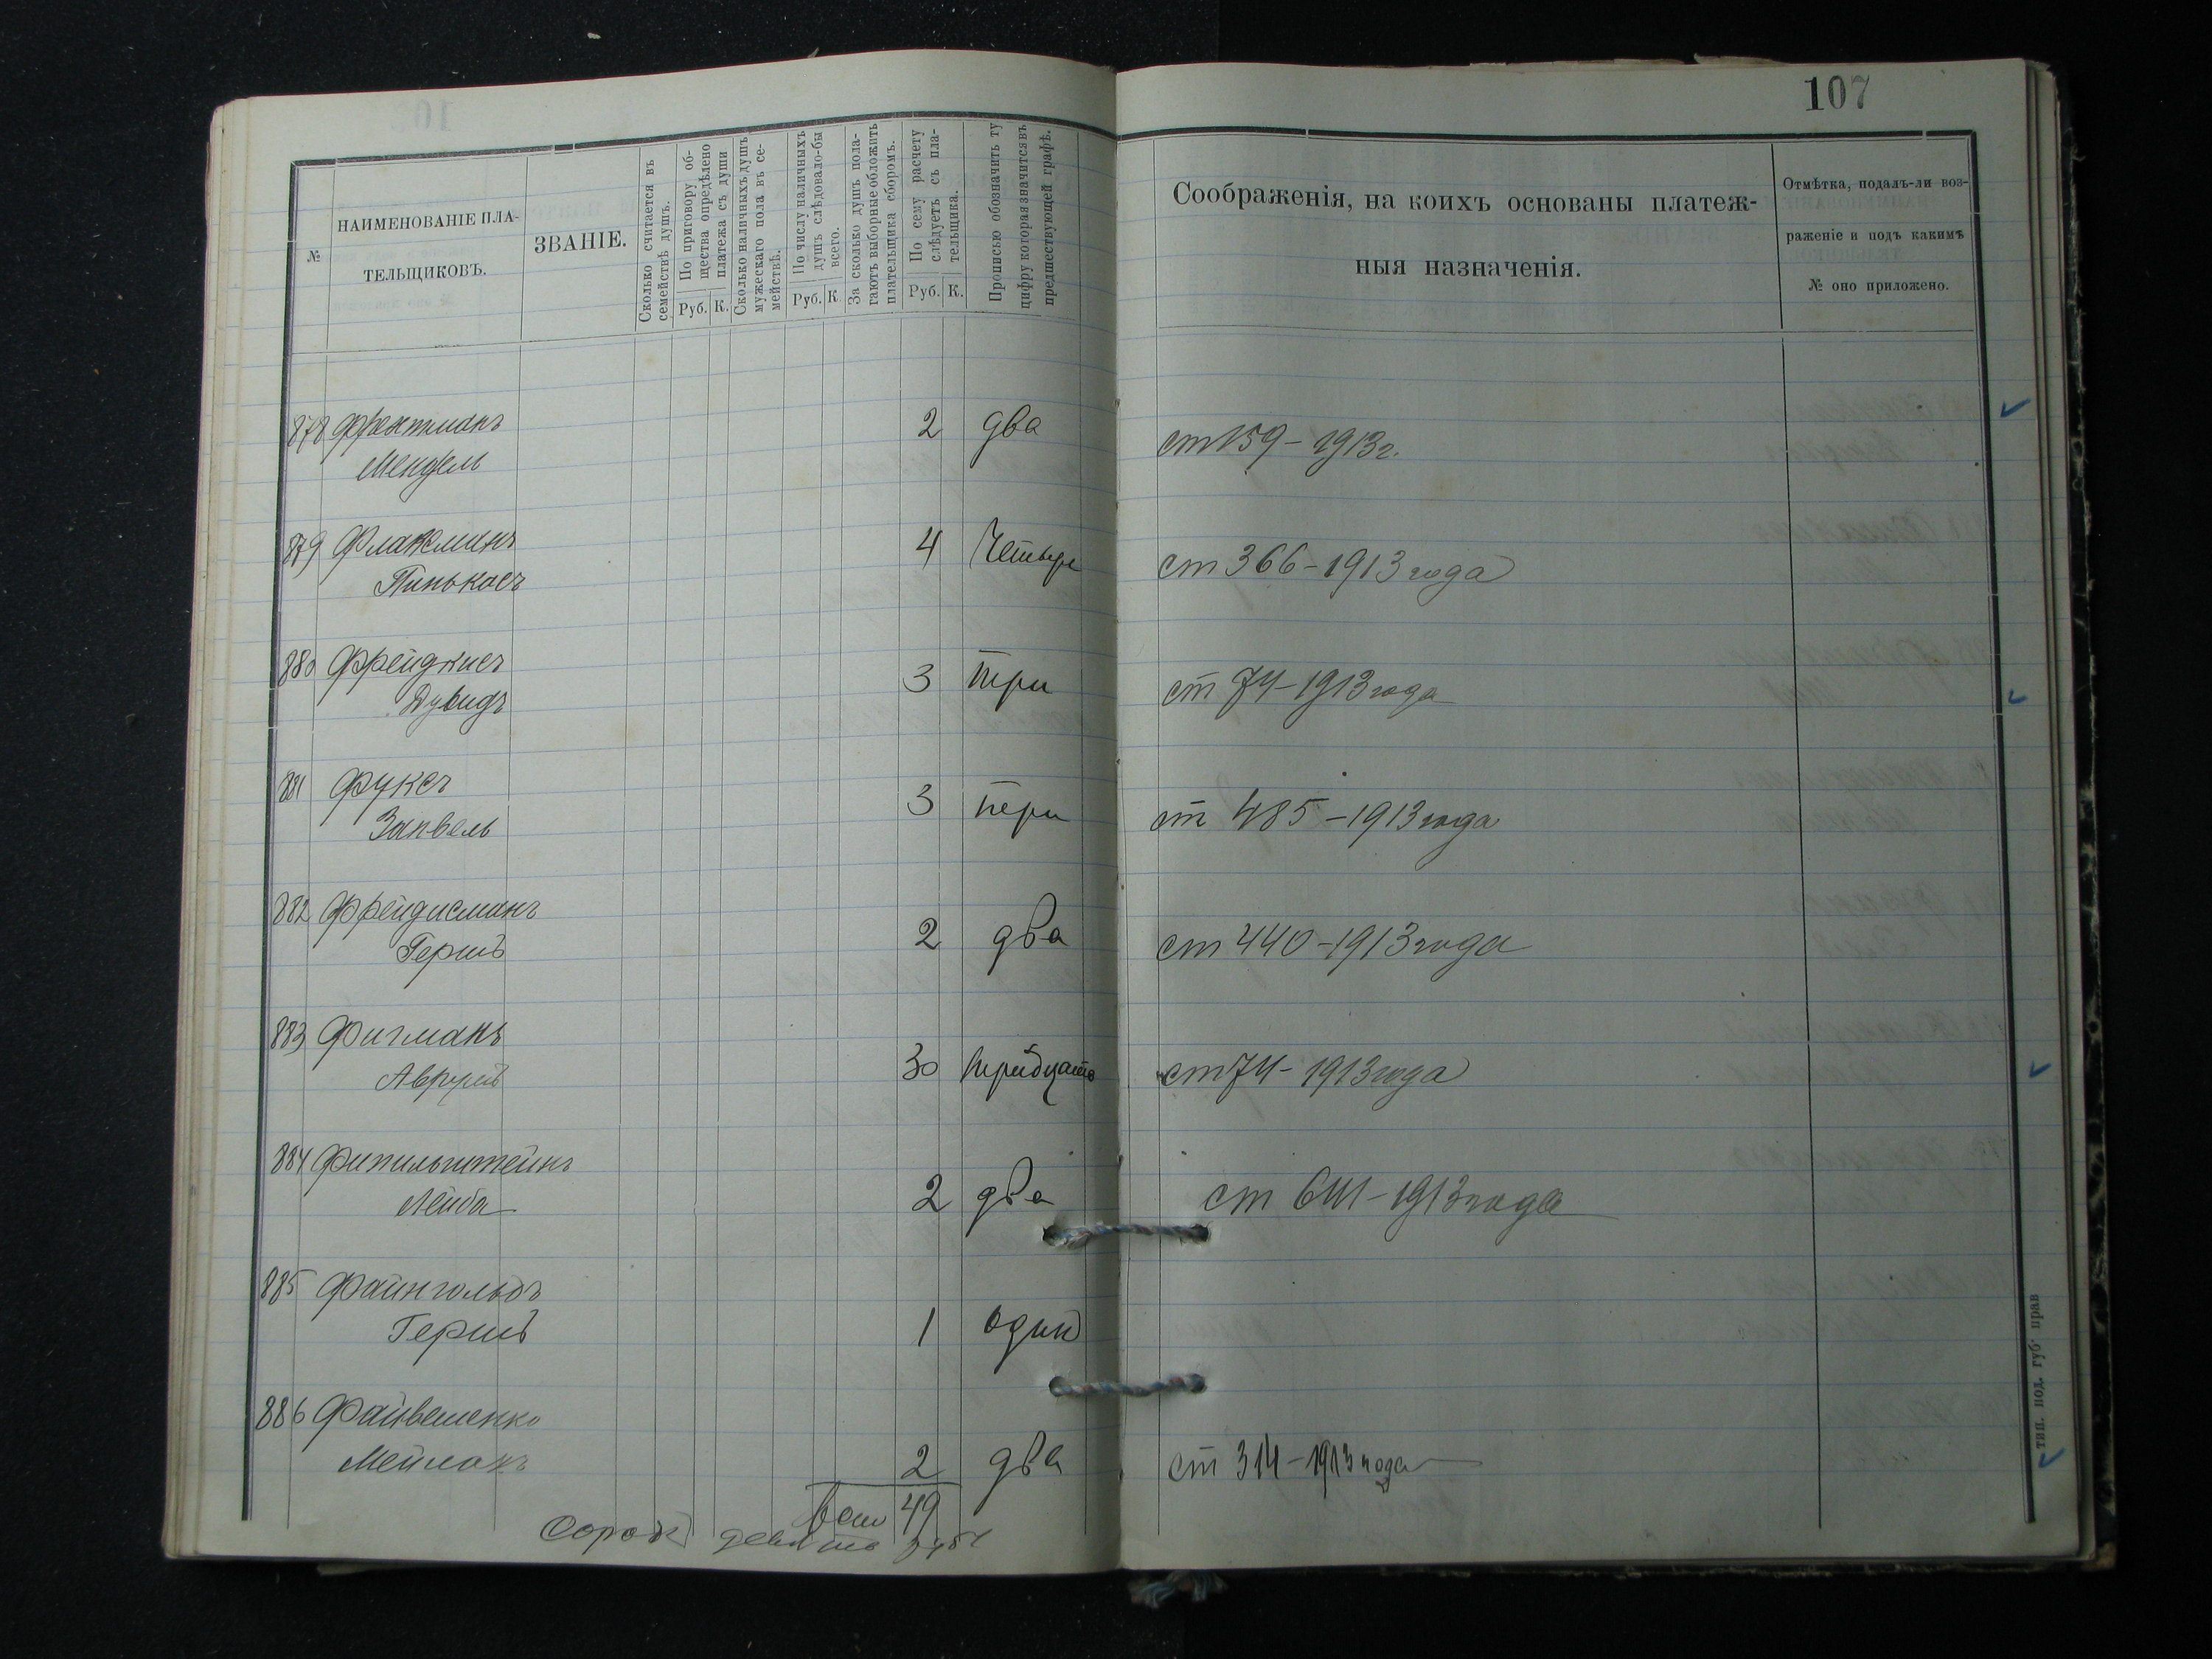 107
№
НАИМЕНОВАНІЕ ПЛА-
ТЕЛЬЩИКОВЪ.
ЗВАНІЕ.
Сколько считается въ
семействѣ душъ.
По приговору об-
щества опредѣлено
платежа съ души
Руб. К.
Сколько наличныхъ душъ
мужескаго пола въ се-
мействѣ.
По числу наличныхъ
душъ слѣдовало-бы
всего.
Руб. К
За сколько душъ пола-
гаютъ выборные обложить
плательщика сборомъ.
По сему расчету
слѣдуетъ съ пла-
тельщика.
Руб. К.
Прописью обозначить ту
цифру которая значится въ
предшествующей графѣ.
Соображенія, на коихъ основаны платеж-
ныя назначенія.
Отмѣтка, подалъ-ли воз-
раженіе и подъ какимъ
№ оно приложено.
878 Фрактманъ 2 два ст 159 - 1913 г.
Мендель
879 Флаксминъ 4 Четыре ст 366 - 1913 года
Пинькосъ
880 Фрейдкисъ 3 три ст 74 - 1913 года
Дувидъ
881 Фуксъ 3 три ст 485 - 1913 года
Занвель
882 Фрейдисманъ 2 два ст 440 - 1913 года
Гершъ
883 Фигманъ 30 тридцать ст 74 - 1913 года
884 Фитильштейнъ 2 два ст 641 - 1913 года
Лейба
885 Файнгольдъ 1 один
Гершъ
886 Файвешенко 2 два ст 314 - 1913 года
Мейлахъ
49
Сорок девять руб
тип. под. губ. прав